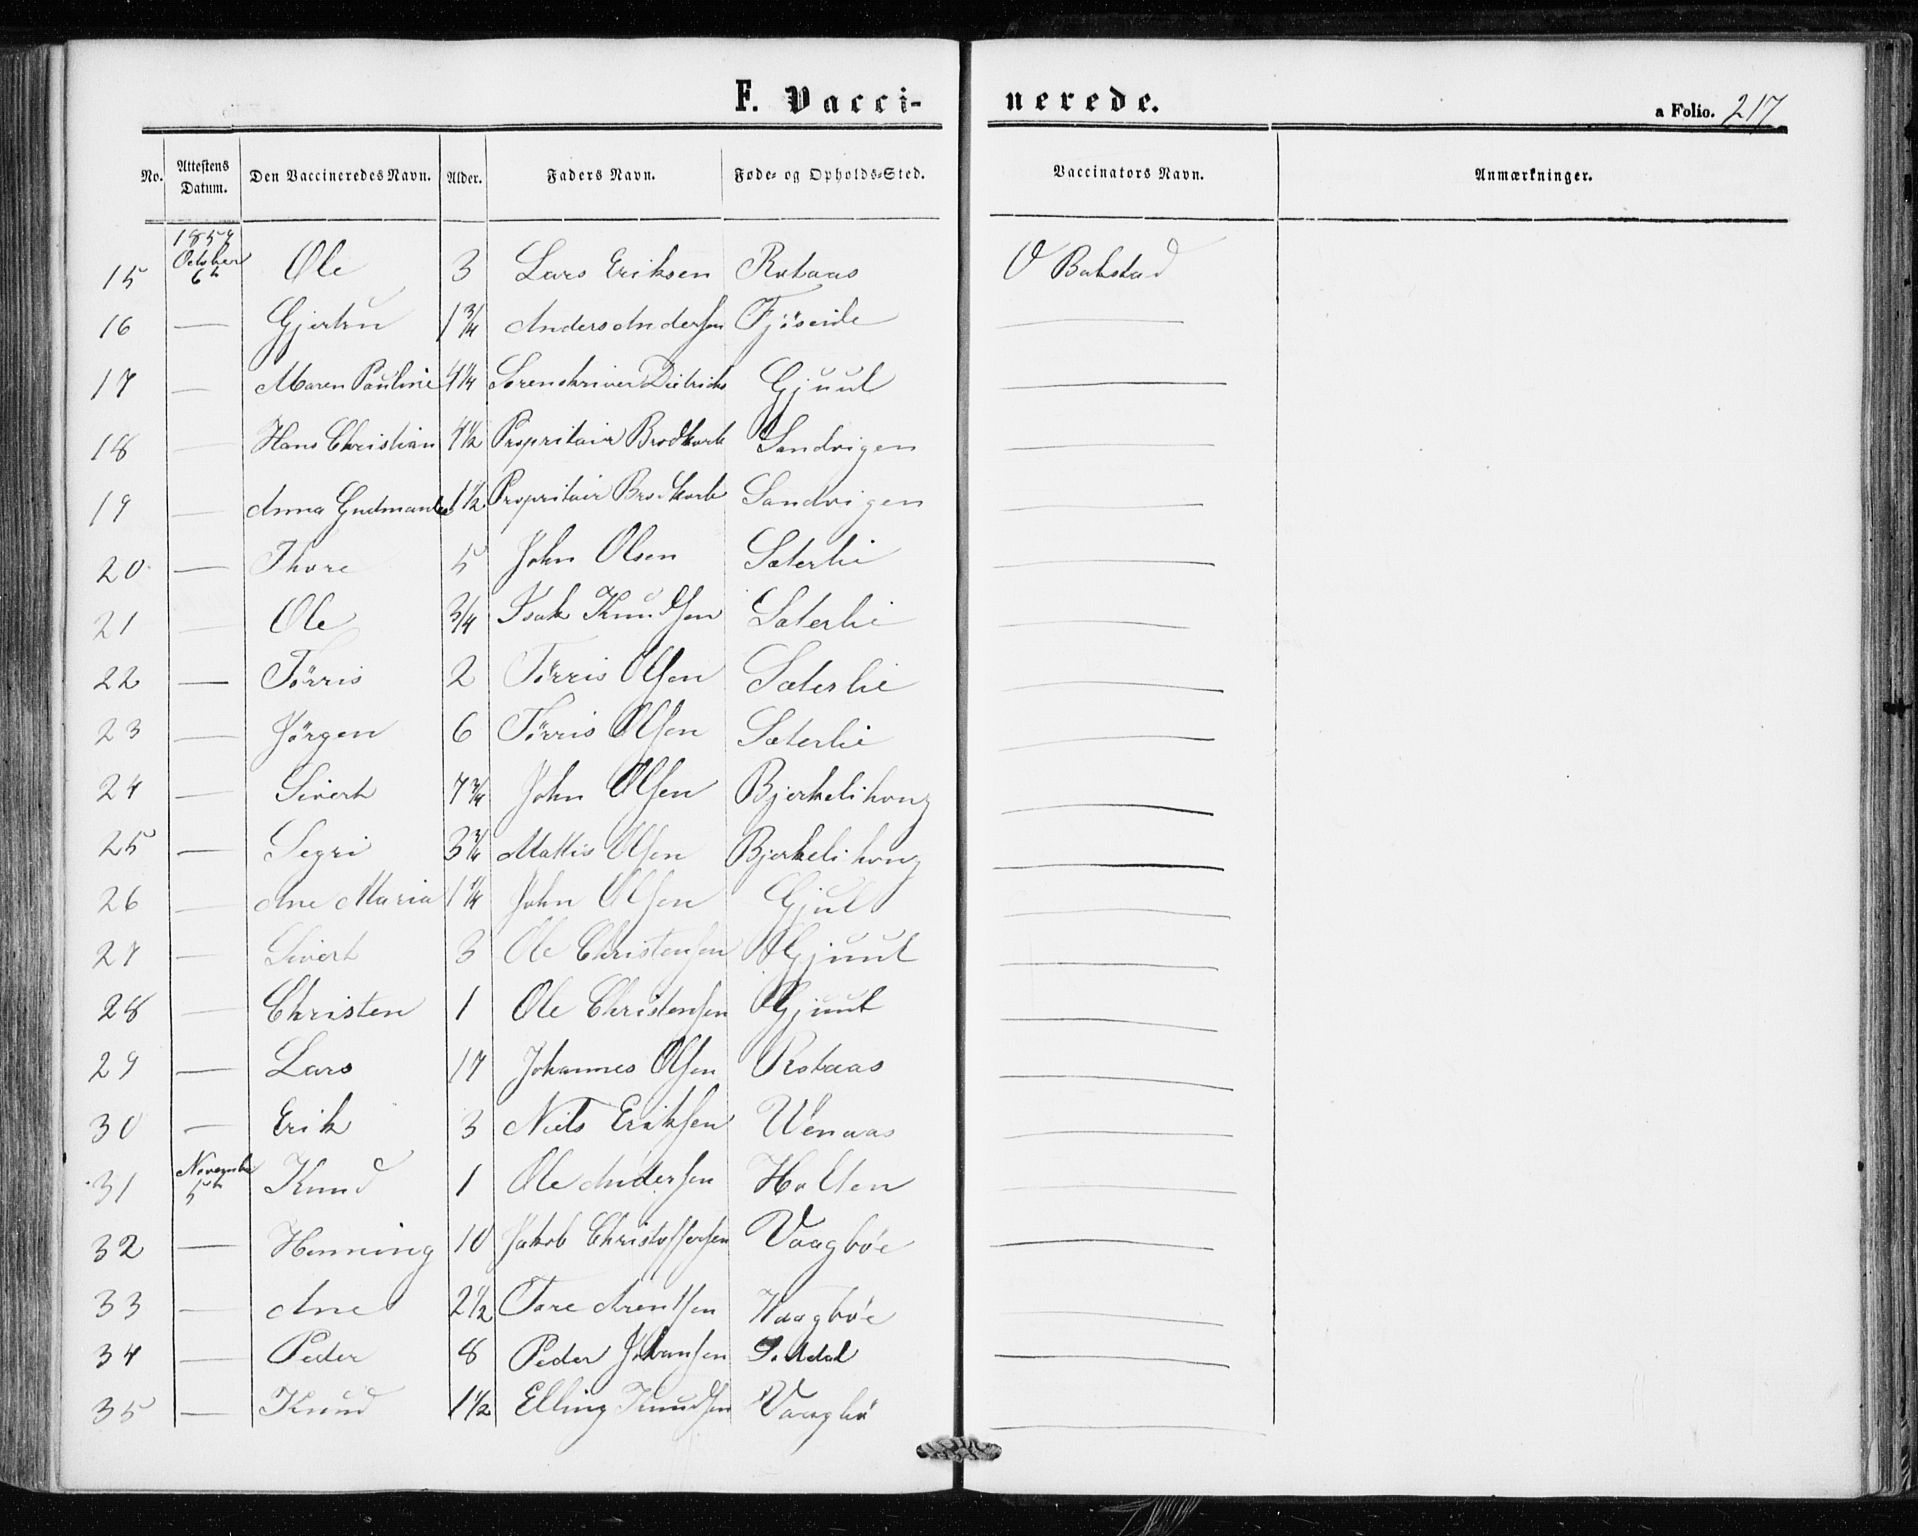 F. Vacci-nerede.
a Folio. 217
No. Attestens Datum. Den Vaccineredes Navn. Alder. Faders Navn. Føde- og Opholds-Sted. Vaccinators Navn. Anmærkninger.
15 October 6te Ole 3 Lars Eriksen Rotaas O Bakstad
16 — Gjertru 1 3/4 Anders Andersen Fjöseide —
17 — Maren Pauline 4 1/4 Sorenskriver Dietrichs Gjuul —
18 — Hans Christian 4 1/2 Propritair Brodkorb Sandvigen —
19 Anna Gudmande 1 1/2 Propritair Brodkorb Sandvigen —
20 — Thore 5 John Olsen Sæterlie —
21 — Ole 3/4 Isak Knudsen Sæterlie —
22 — Törris 2 Törris Olsen Sæterlie —
23 — Jörgen 6 Törris Olsen Sæterlie —
24 — Sivert 7 3/4 John Olsen Bjerkelihoug —
25 — Segri 3 3/4 Mattis Olsen Bjerkelihoug —
26 — Ane Maria 1 1/4 John Olsen Gjul —
27 — Sivert 3 Ole Christensen Gjuul —
28 — Christen 1 Ole Christensen Gjuul —
29 — Lars 17 Johannes Olsen Rotaas —
30 — Erik 3 Niels Eriksen Wenaas —
31 Novembr 5te Knud 1 Ole Andersen Holten —
32 — Henning 10 Jakob Christoffersen Vaagböe —
33 — Ane 2 1/2 Tore Arentsen Vaagböe —
34 — Peder 8 Peder Johansen —
35 — Knud 1 1/2 Elling Knudsen Vaagbö —